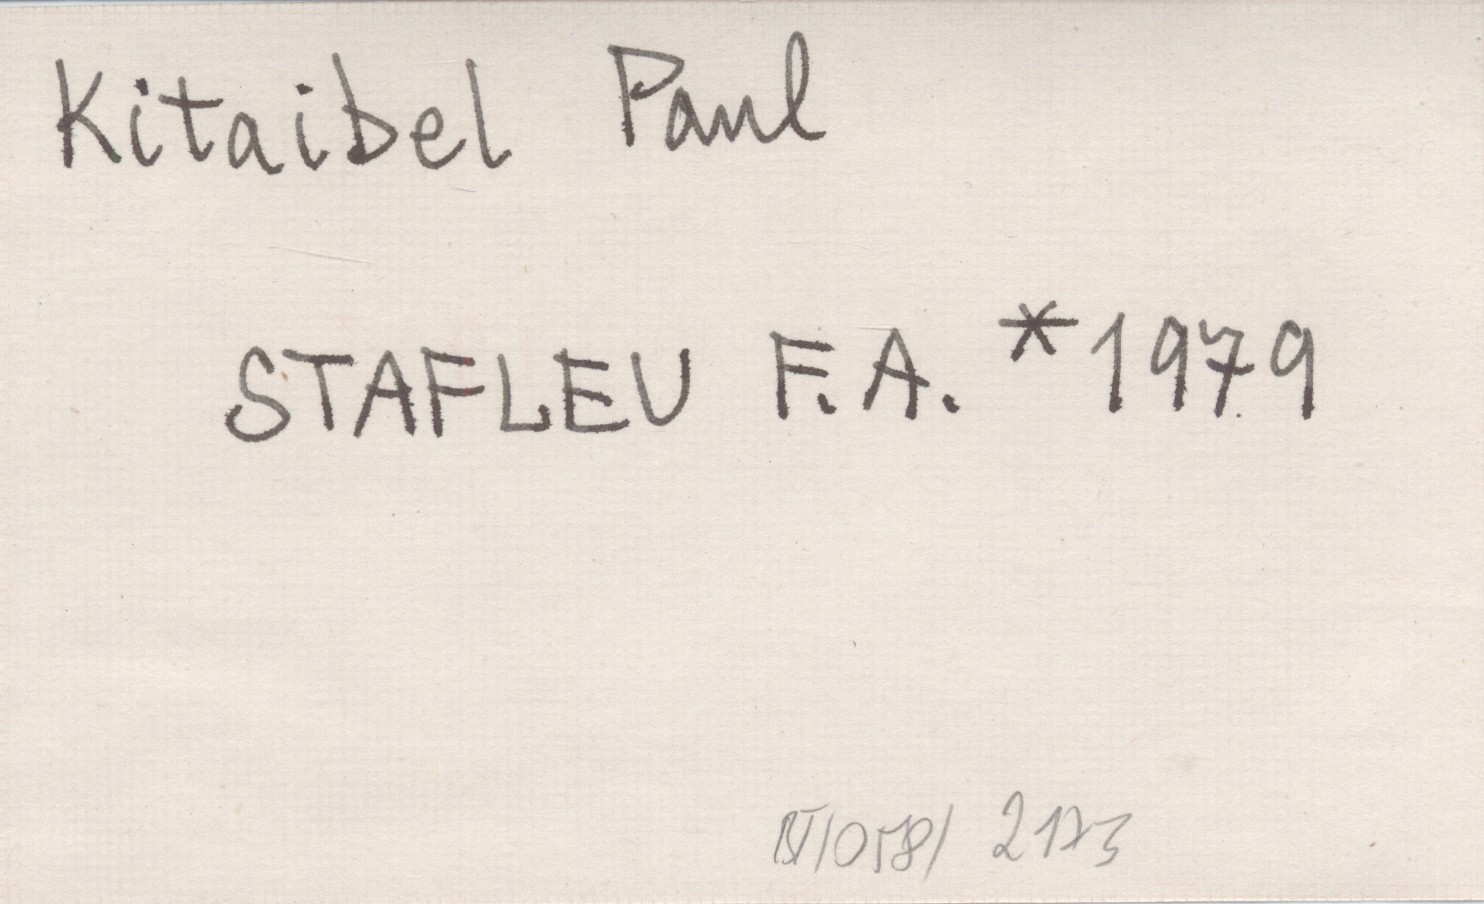 Kitaibel Paul
STAFLEU F.A. *1979
/058/ 2173